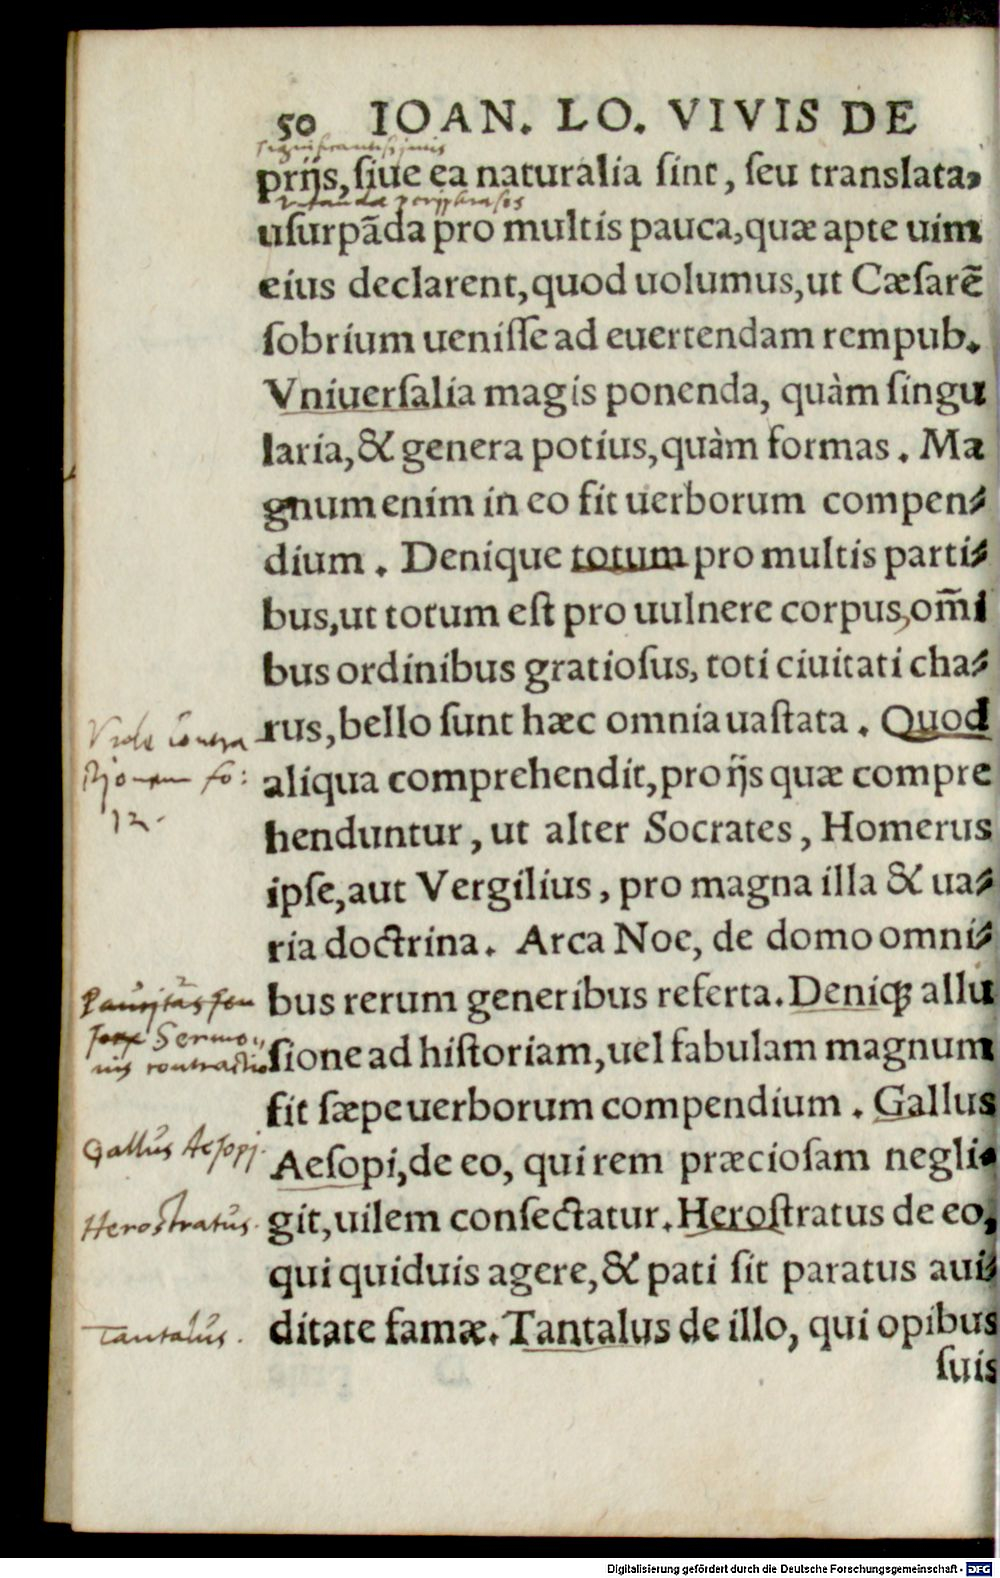 50 IOAN. LO. VIVIS DE
significantissimis
prijs, ſiue ea naturalia ſint, ſeu translata,
periphrasis
uſurpãda pro multis pauca, quæ apte uim
eius declarent, quod uolumus, ut Cæſarẽ
ſobrium ueniſſe ad euertendam rempub.
Vniuerſalia magis ponenda, quàm ſingu
laria, & genera potius, quàm formas. Ma
gnum enim in eo fit uerborum compen⸗
dium. Denique totum pro multis parti⸗
bus, ut totum eſt pro uulnere corpus, om̃i
bus ordinibus gratioſus, toti ciuitati cha⸗
rus, bello ſunt hæc omnia uaſtata. Quod
aliqua comprehendit, pro ijs quæ compre
henduntur, ut alter Socrates, Homerus
ipſe, aut Vergilius, pro magna illa & ua⸗
ria doctrina. Arca Noe, de domo omni⸗
bus rerum generibus referta. Deniqꝫ allu
ſione ad hiſtoriam, uel fabulam magnum
fit ſæpe uerborum compendium. Gallus
Aeſopi, de eo, qui rem præcioſam negli⸗
git, uilem conſectatur. Heroſtratus de eo,
qui quiduis agere, & pati ſit paratus aui⸗
ditate famæ. Tantalus de illo, qui opibus
ſuis
fo:
12.
Sermo⸗
nis contractio
Gallus Aesopj.
Herostratus.
Tantalus.
Digitalisierung gefördert durch die Deutsche Forschungsgemeinschaft - DFG